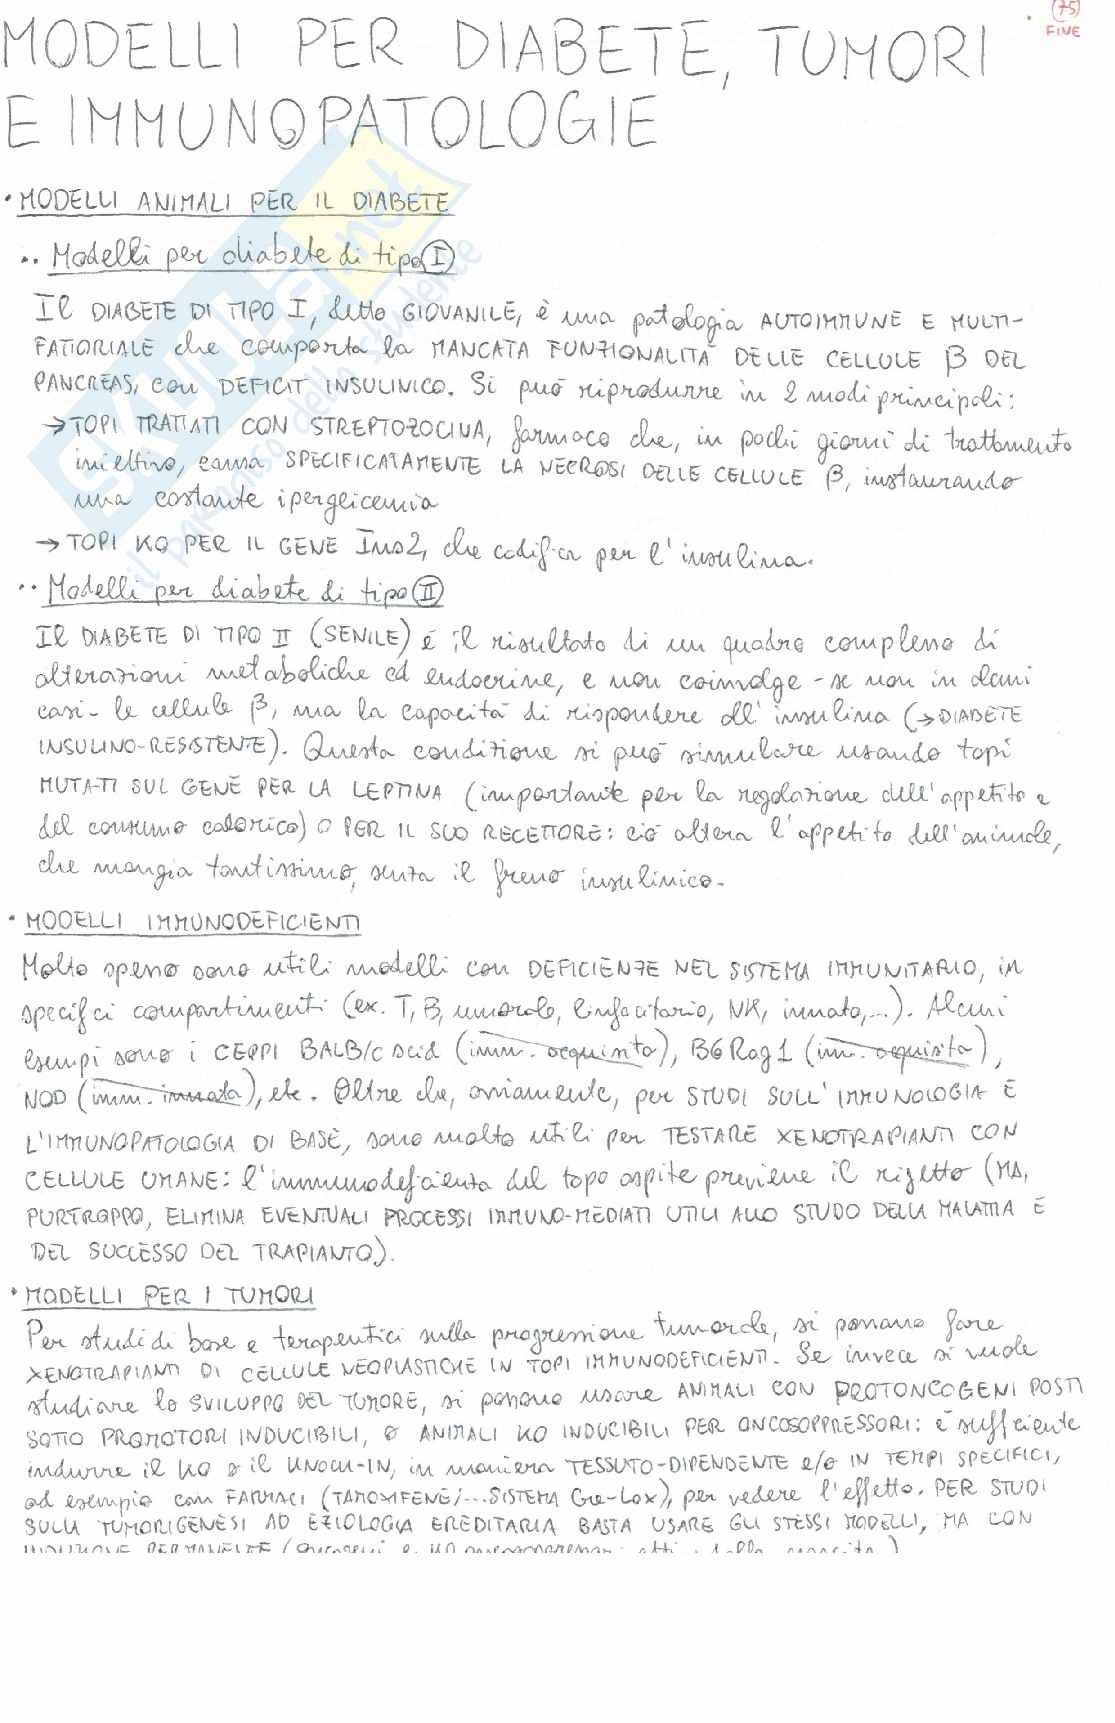 75
FIVE
MODELLI PER DIABETE, TUMORI
E IMMUNOPATOLOGIE
• MODELLI ANIMALI PER IL DIABETE
•• Modelli per diabete di tipo I
Il DIABETE DI TIPO I, detto GIOVANILE, è una patologia AUTOIMMUNE E MULTI-
FATTORIALE che comporta la MANCATA FUNZIONALITÀ DELLE CELLULE β DEL
PANCREAS, con DEFICIT INSULINICO. Si può riprodurre in 2 modi principali:
→ TOPI TRATTATI CON STREPTOZOCINA, farmaco che, in pochi giorni di trattamento
iniettivo, causa SPECIFICATAMENTE LA NECROSI DELLE CELLULE β, instaurando
una costante iperglicemia
→ TOPI KO PER IL GENE Ins2, che codifica per l'insulina.
•• Modelli per diabete di tipo II
Il DIABETE DI TIPO II (SENILE) è il risultato di un quadro complesso di
alterazioni metaboliche ed endocrine, e non coinvolge - se non in alcuni
casi - le cellule β, ma la capacità di rispondere all'insulina (→ DIABETE
INSULINO-RESISTENTE). Questa condizione si può simulare usando topi
MUTATI SUL GENE PER LA LEPTINA (importante per la regolazione dell'appetito e
del consumo calorico) O PER IL SUO RECETTORE: ciò altera l'appetito dell'animale,
che mangia tantissimo, senza il freno insulinico.
• MODELLI IMMUNODEFICIENTI
Molto spesso sono utili modelli con DEFICIENZE NEL SISTEMA IMMUNITARIO, in
specifici compartimenti (ex. T, B, umorale, linfocitario, NK, innato,...). Alcuni
esempi sono i CEPPI BALB/c scid (imm. acquisita), B6 Rag1 (im. acquista),
NOD (imm. innata), etc. Oltre che, ovviamente, per STUDI SULL'IMMUNOLOGIA E
L'IMMUNOPATOLOGIA DI BASE, sono molto utili per TESTARE XENOTRAPIANTI CON
CELLULE UMANE: l'immunodeficienza del topo ospite previene il rigetto (MA,
PURTROPPO, ELIMINA EVENTUALI PROCESSI IMMUNO-MEDIATI UTILI ALLO STUDIO DELLA MALATTIA E
DEL SUCCESSO DEL TRAPIANTO).
• MODELLI PER I TUMORI
Per studi di base e terapeutici sulla progressione tumorale, si possono fare
XENOTRAPIANTI DI CELLULE NEOPLASTICHE IN TOPI IMMUNODEFICIENTI. Se invece si vuole
studiare lo SVILUPPO DEL TUMORE, si possono usare ANIMALI CON PROTONCOGENI POSTI
SOTTO PROMOTORI INDUCIBILI, O ANIMALI KO INDUCIBILI PER ONCOSOPPRESSORI: è sufficiente
indurre il KO o il KNOCK-IN, in maniera TESSUTO-DIPENDENTE e/o IN TEMPI SPECIFICI,
ad esempio con FARMACI (TAMOXIFENE/...SISTEMA Cre-Lox), per vedere l'effetto. PER STUDI
SULLA TUMORIGENESI AD EZIOLOGIA EREDITARIA BASTA USARE GLI STESSI MODELLI, MA CON
SKUOLA.net
il paradiso dello studente